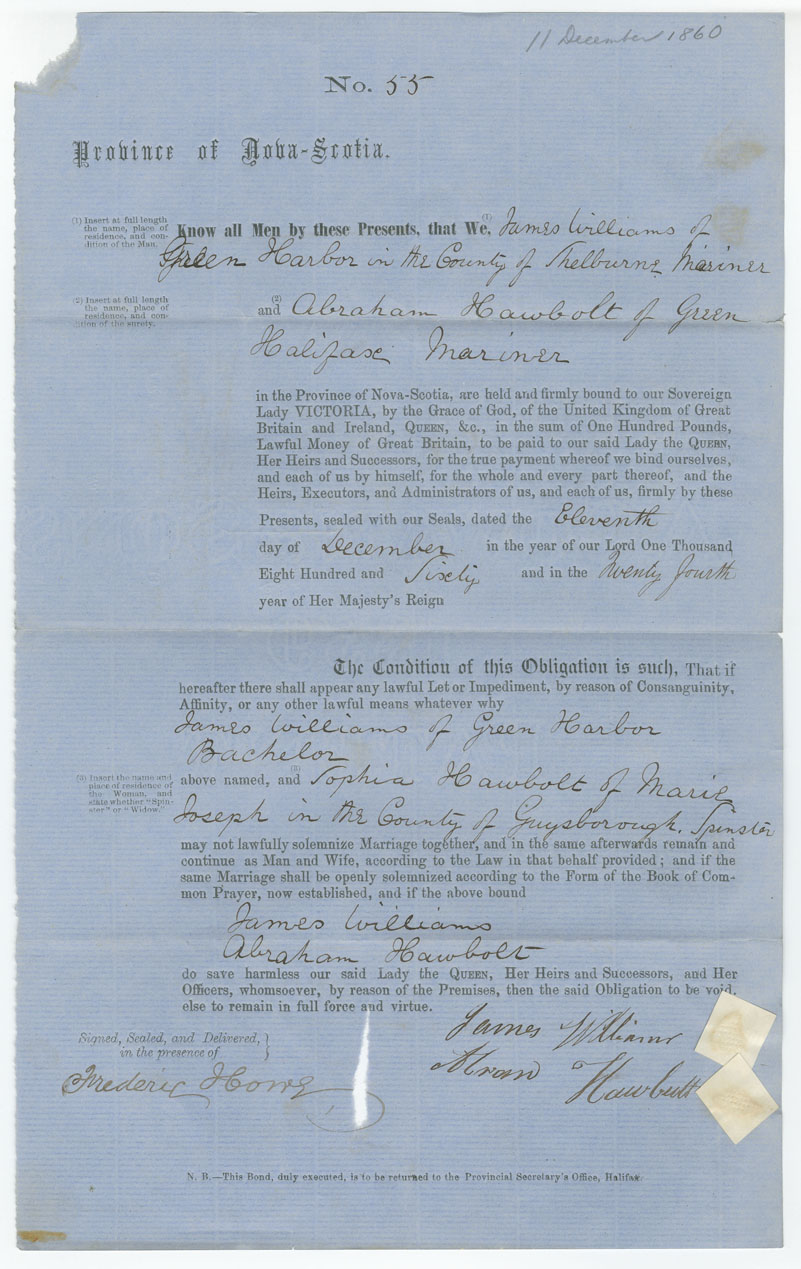 11 December 1860
No. 55
Province of Nova-Scotia.
(1) Insert at full length
the name, place of
residence, and con-
dition of the Man.
Know all Men by these Presents, that We, (1) James Williams of
Green Harbor in the County of Shelburne Mariner
(2) Insert at full length
the name, place of
residence, and con-
dition of the surety.
and (2) Abraham Hawbolt of Green
Halifax Mariner
in the Province of Nova-Scotia, are held and firmly bound to our Sovereign
Lady VICTORIA, by the Grace of God, of the United Kingdom of Great
Britain and Ireland, QUEEN, &c., in the sum of One Hundred Pounds,
Lawful Money of Great Britain, to be paid to our said Lady the QUEEN,
Her Heirs and Successors, for the true payment whereof we bind ourselves,
and each of us by himself, for the whole and every part thereof, and the
Heirs, Executors, and Administrators of us, and each of us, firmly by these
Presents, sealed with our Seals, dated the Eleventh
day of December in the year of our Lord One Thousand
Eight Hundred and Sixty and in the Twenty fourth
year of Her Majesty's Reign
The Condition of this Obligation is such, That if
hereafter there shall appear any lawful Let or Impediment, by reason of Consanguinity,
Affinity, or any other lawful means whatever why
James Williams of Green Harbor
Bachelor
(3) Insert the name and
place of residence of
the Woman, and
state whether "Spin-
ster" or "Widow."
above named, and (3) Sophia Hawbolt of Marie
Joseph in the County of Guysborough. Spinster
may not lawfully solemnize Marriage together, and in the same afterwards remain and
continue as Man and Wife, according to the Law in that behalf provided; and if the
same Marriage shall be openly solemnized according to the Form of the Book of Com-
mon Prayer, now established, and if the above bound
James Williams
Abraham Hawbolt
do save harmless our said Lady the QUEEN, Her Heirs and Successors, and Her
Officers, whomsoever, by reason of the Premises, then the said Obligation to be void,
else to remain in full force and virtue.
Signed, Sealed, and Delivered,
in the presence of
James Williams
Hawbutt
Frederic Howe
N. B.—This Bond, duly executed, is to be returned to the Provincial Secretary's Office, Halifax.